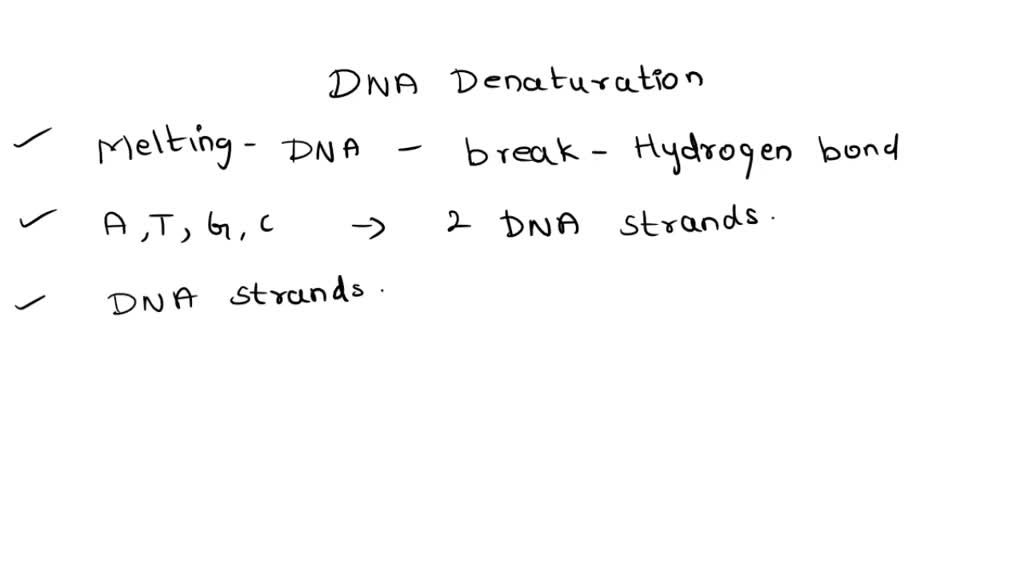 DNA Denaturation
Melting - DNA - break - Hydrogen bond
A, T, G, C → 2 DNA strands.
DNA strands.